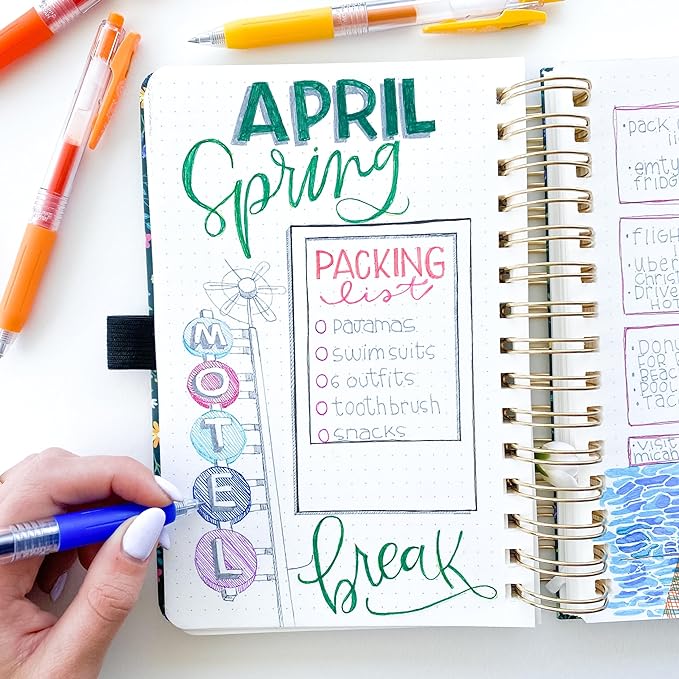 APRIL
Spring
PACKING
list
pajamas
swimsuits
6 outfits
toothbrush
snacks
MOTEL
break
• pack
• emty
fridg
• fligh
• uber
Chris
• Drive
Hot
• Donu
for
• Beac
Pool
• Taca
• Visit
micah